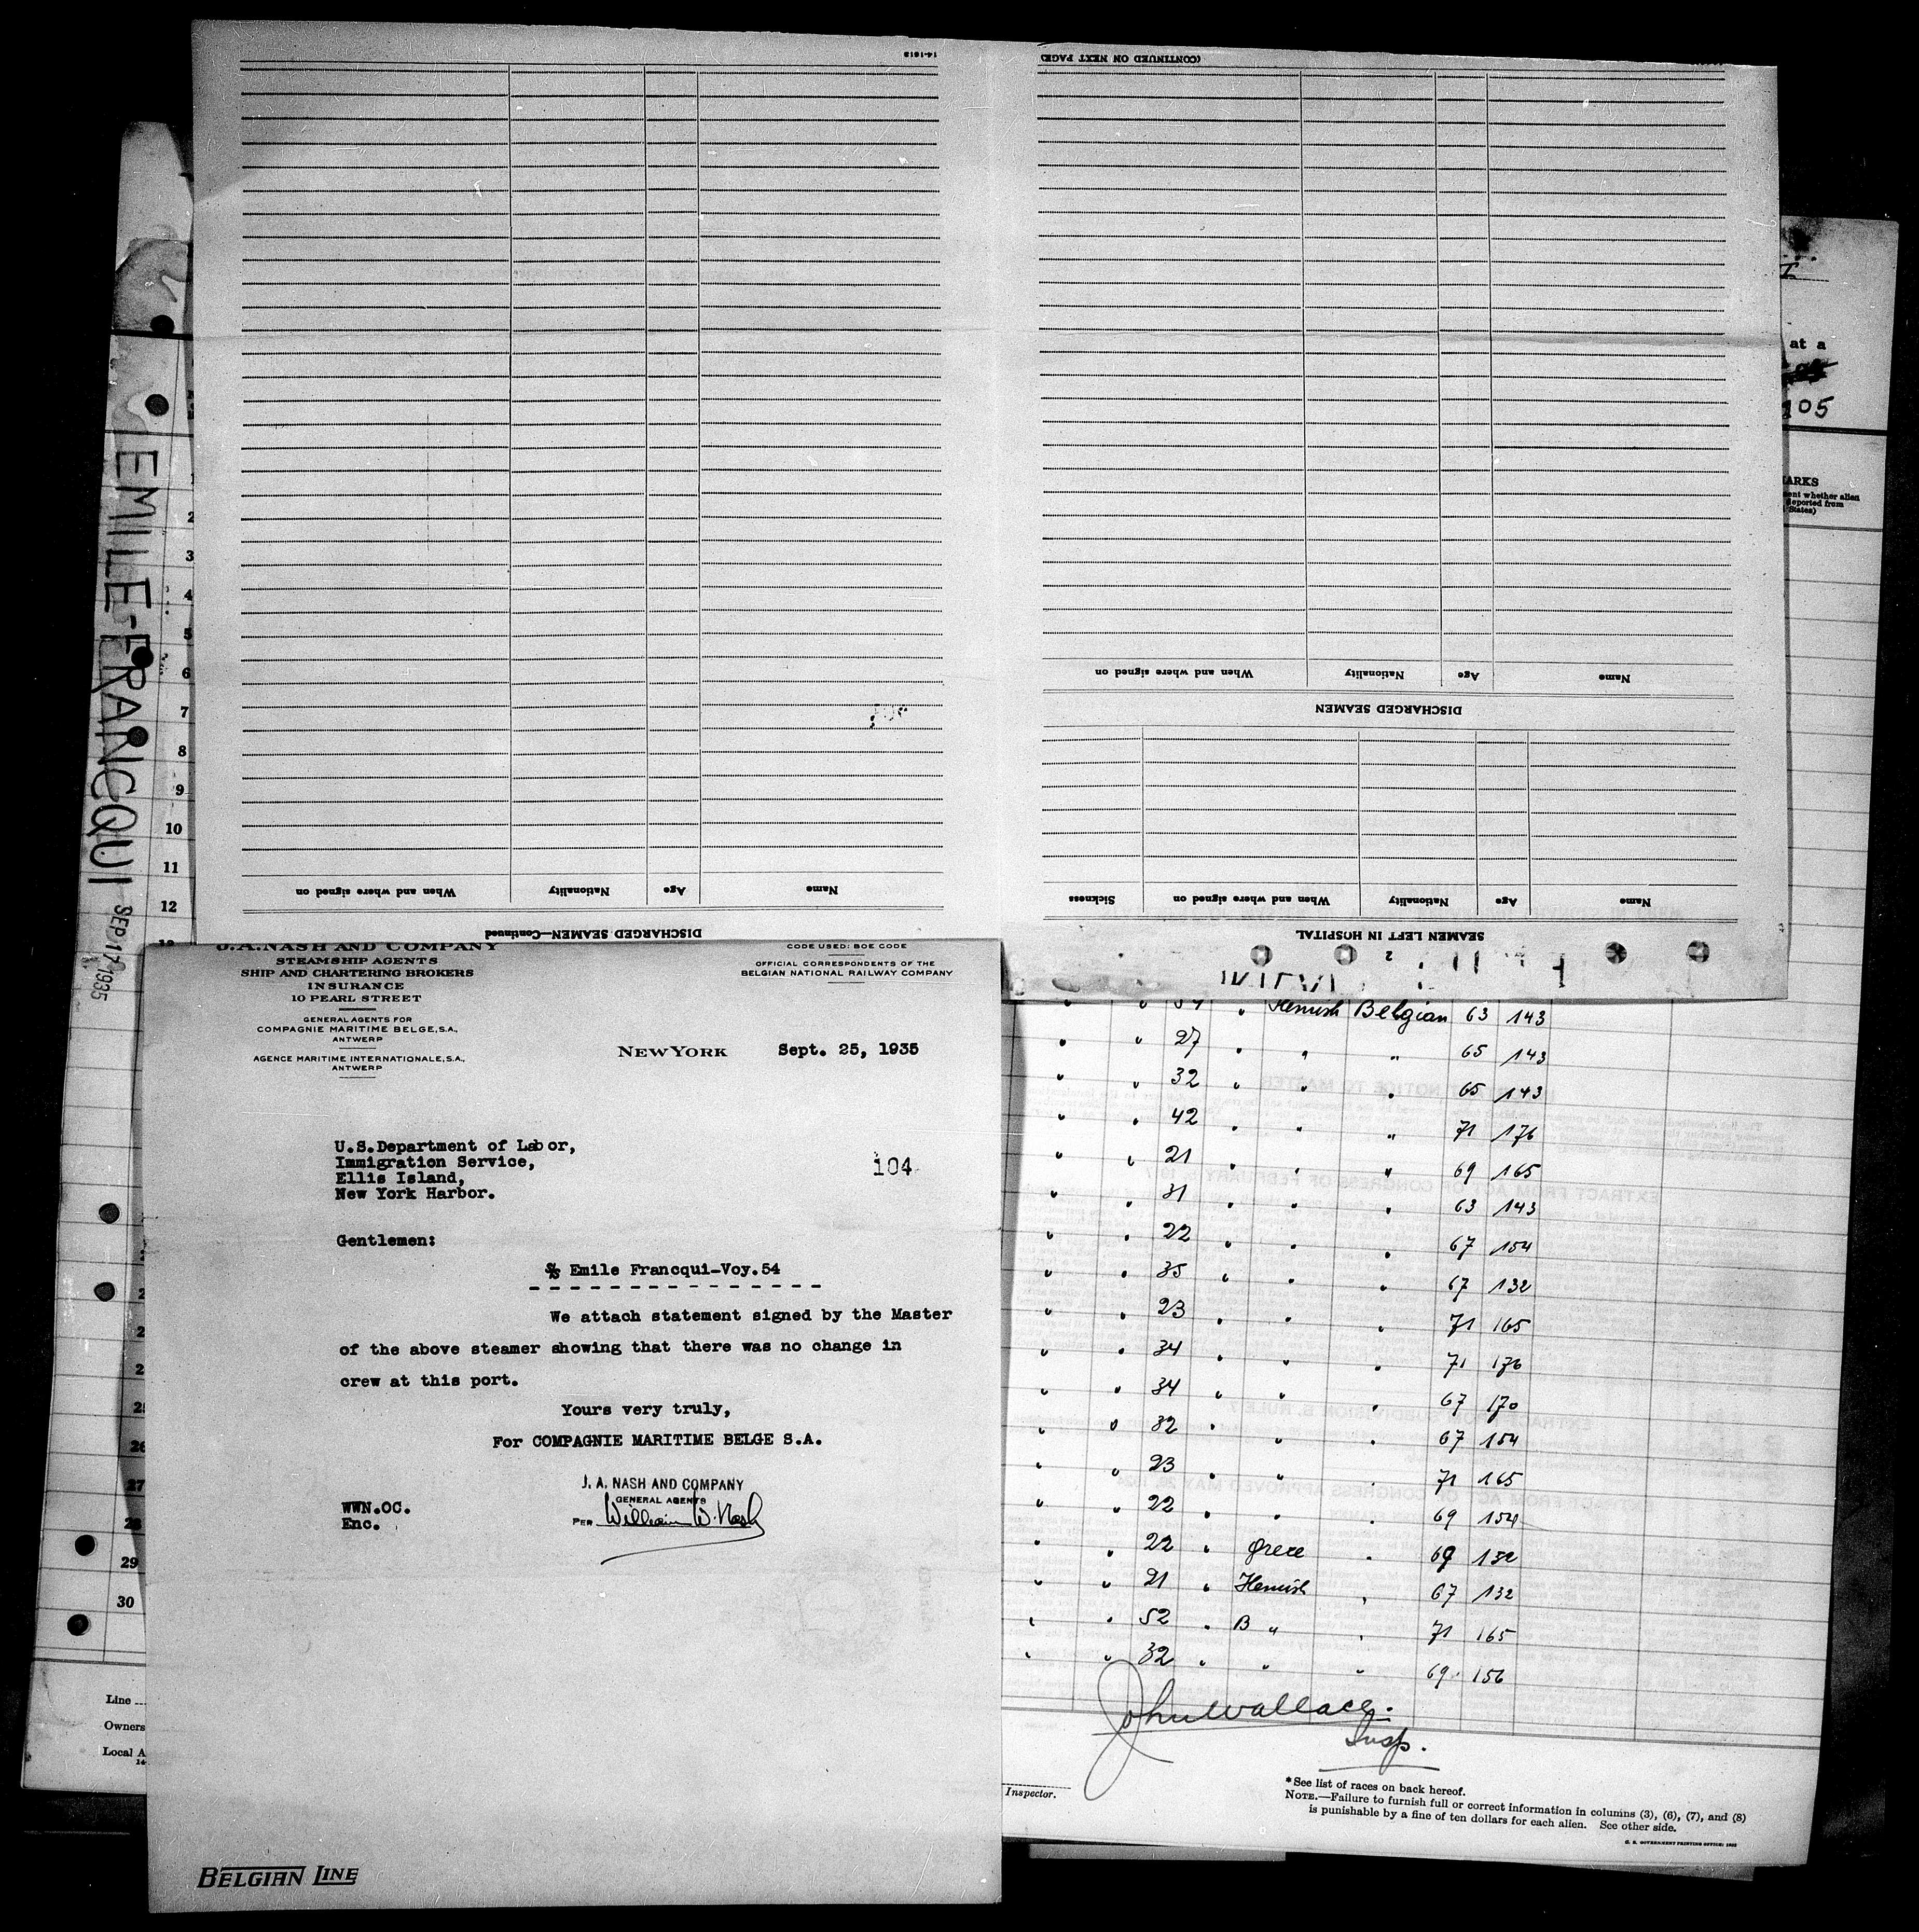 14-1613
(CONTINUED ON NEXT PAGE)
Name
Age
Nationality
When and where signed on
DISCHARGED SEAMEN
Name
Age
Nationality
When and where signed on
Sickness
SEAMEN LEFT IN HOSPITAL
Name
Age
Nationality
When and where signed on
DISCHARGED SEAMEN—Continued
EMILE-FRANCQUI
SEP 17 1935
2
3
4
5
6
7
8
9
10
11
12
26
27
28
29
30
Line
Owners
Local A
at a
105
whether alien
deported from
States)
J.A.NASH AND COMPANY
STEAMSHIP AGENTS
SHIP AND CHARTERING BROKERS
INSURANCE
10 PEARL STREET
GENERAL AGENTS FOR
COMPAGNIE MARITIME BELGE, S.A.,
ANTWERP
AGENCE MARITIME INTERNATIONALE, S.A.,
ANTWERP
CODE USED: BOE CODE
OFFICIAL CORRESPONDENTS OF THE
BELGIAN NATIONAL RAILWAY COMPANY
NEW YORK Sept. 25, 1935
U.S.Department of Labor,
Immigration Service,
Ellis Island,
New York Harbor.
104
Gentlemen:
S/S Emile Francqui-Voy.54
We attach statement signed by the Master
of the above steamer showing that there was no change in
crew at this port.
Yours very truly,
For COMPAGNIE MARITIME BELGE S.A.
J. A. NASH AND COMPANY
GENERAL AGENTS
PER William W. Nash
WWN.OC.
Enc.
BELGIAN LINE
" Flemish Belgian 63 143
" " 27 " " " 65 143
" " 32 " " " 65 143
" " 42 " " " 71 176
" " 21 " " " 69 165
" " 31 " " " 63 143
" " 22 " " " 67 154
" " 35 " " " 67 132
" " 23 " " " 71 165
" " 34 " " " 71 176
" " 34 " " " 67 170
" " 32 " " " 67 154
" " 23 " " " 71 165
" " 22 " " " 69 154
" " 22 " Grece " 69 132
" " 21 " Flemish " 67 132
" " 52 " B " " 71 165
" " 32 " " " 69 156
John Wallace.
Insp.
Inspector.
*See list of races on back hereof.
NOTE.—Failure to furnish full or correct information in columns (3), (6), (7), and (8)
is punishable by a fine of ten dollars for each alien. See other side.
U. S. GOVERNMENT PRINTING OFFICE: 1932